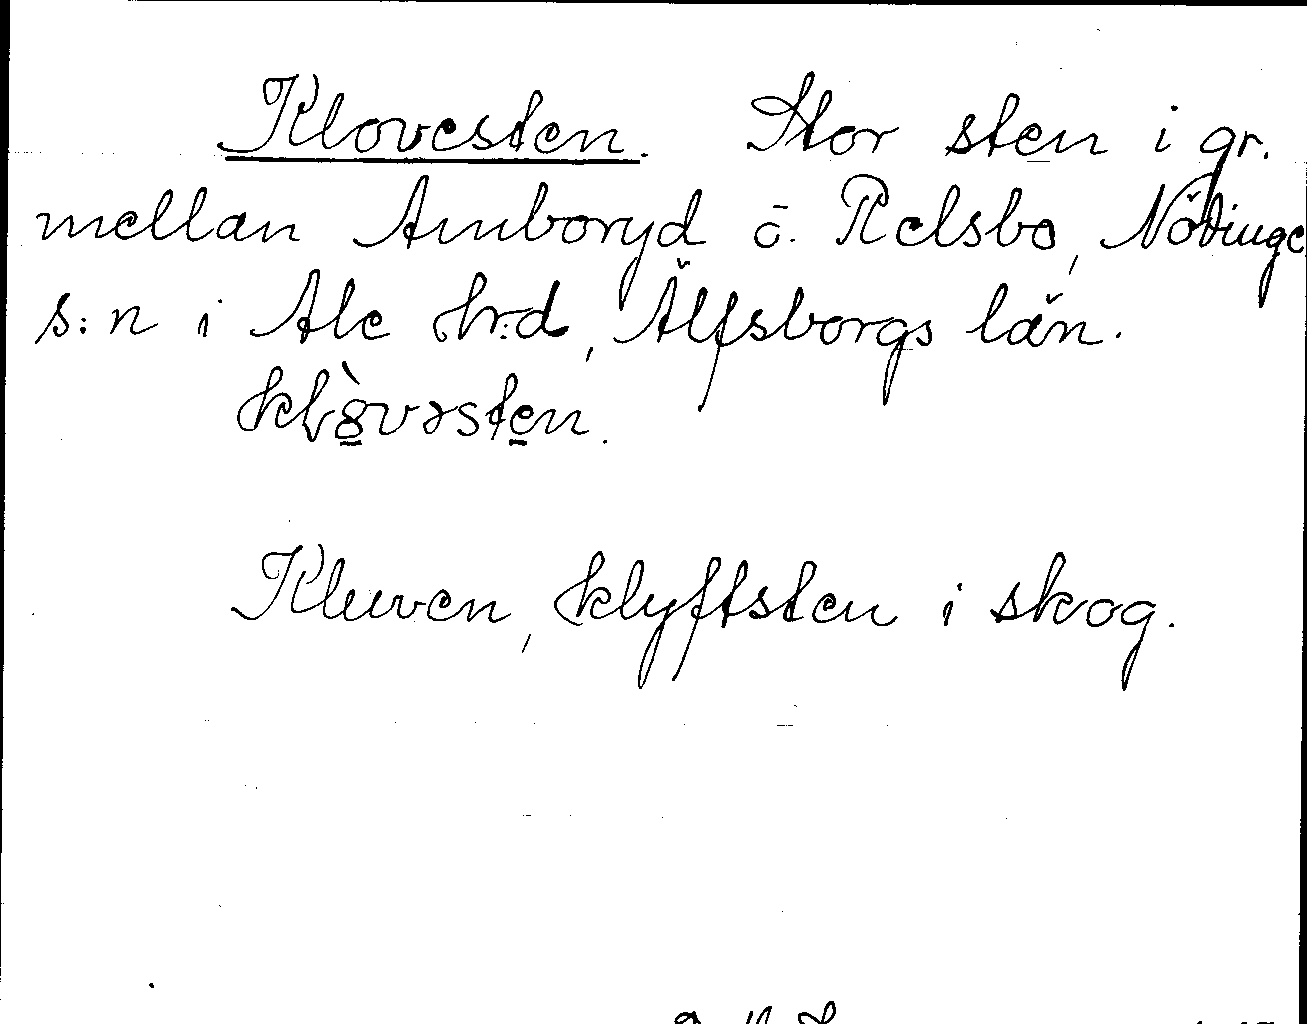 Klovesten. Stor sten i gr.
mellan Amboryd o. Relsbo, Nödinge
s:n i Ale hrd, Älfsborgs län.
Kluven, klyftsten i skog.